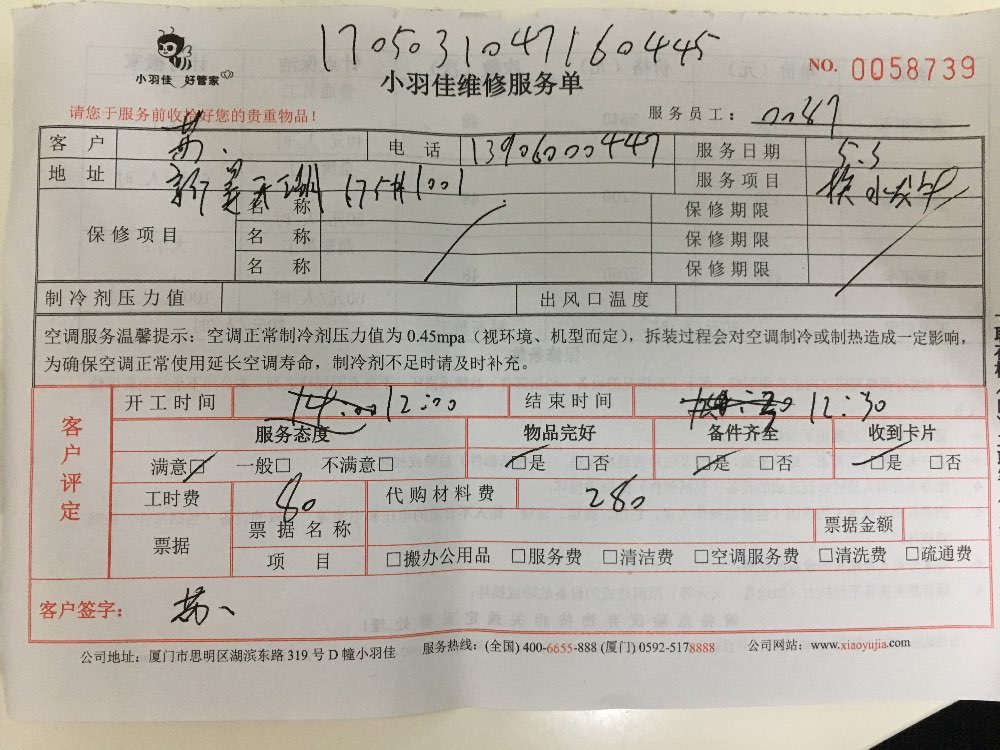 1705031047160445
小羽佳 好管家
小羽佳维修服务单
NO. 0058739
请您于服务前收拾好您的贵重物品！
服务员工： 0087
客户 电话 13906000447 服务日期 5.3
地址 175#1001 服务项目 换水龙头
保修项目 名称 保修期限
名称 保修期限
名称 保修期限
制冷剂压力值 出风口温度
空调服务温馨提示：空调正常制冷剂压力值为 0.45mpa（视环境、机型而定），拆装过程会对空调制冷或制热造成一定影响，
为确保空调正常使用延长空调寿命，制冷剂不足时请及时补充。
客户评定
开工时间 12:00 结束时间 12:30
服务态度 物品完好 备件齐全 收到卡片
满意□ 一般□ 不满意□ □是 □否 □是 □否 □是 □否
工时费 80 代购材料费 280
票据 票据名称 票据金额
项目 □搬办公用品 □服务费 □清洁费 □空调服务费 □清洗费 □疏通费
客户签字：
公司地址：厦门市思明区湖滨东路 319 号 D 幢小羽佳 服务热线：(全国) 400-6655-888 (厦门) 0592-5178888 公司网站：www.xiaoyujia.com